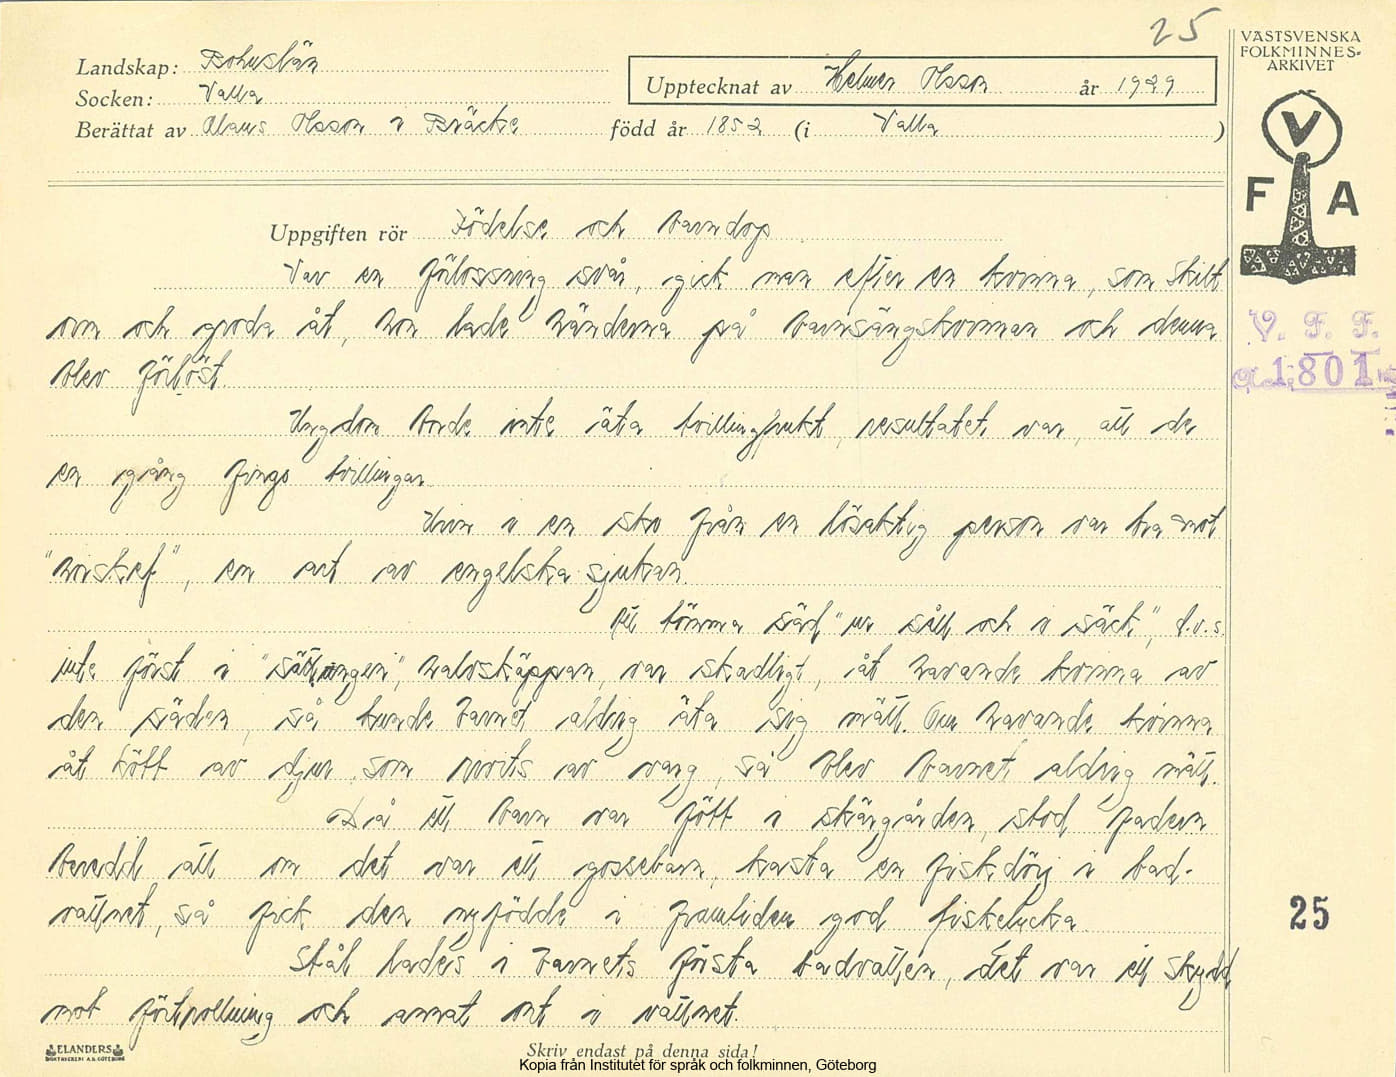 25
VÄSTSVENSKA
FOLKMINNES-
ARKIVET
Landskap: Bohuslän
Upptecknat av Helmer Olsson år 1929
Socken: Valla
Berättat av Olaus Olsson i Bräcke född år 1852 (i Valla )
V
F A
Uppgiften rör Födelse och barndop
Var en förlossning svår, gick man efter en kvinna, som skilt
orm och groda åt, hon lade händerna på barnsängskvinnan och denna
blev förlöst.
V. F. F.
1801
Ungdom borde inte äta tvillingfrukt, resultatet var, att de
en gång fingo tvillingar
Urin i en sko från en lösaktig person var bra mot
"horskef", en art av engelska sjukan.
Att tömma säd "ur såll och i säck", d.v.s.
inte först i "sättungen", halvskäppan, var skadligt, åt havande kvinna av
den säden, så kunde barnet aldrig äta sig mätt. Om havande kvinna
åt kött av djur som rivits av varg, så blev barnet aldrig mätt.
Då ett barn var fött i skärgården, stod fadern
beredd att om det var ett gossebarn, kasta en fiskdörj i bad-
vattnet, så fick den nyfödde i framtiden god fiskelycka.
25
Stål lades i barnets första badvatten, det var ett skydd
mot förtrollning och annat ont i vattnet.
ELANDERS
BOKTRYCKERI A.B. GÖTEBORG
Skriv endast på denna sida!
Kopia från Institutet för språk och folkminnen, Göteborg